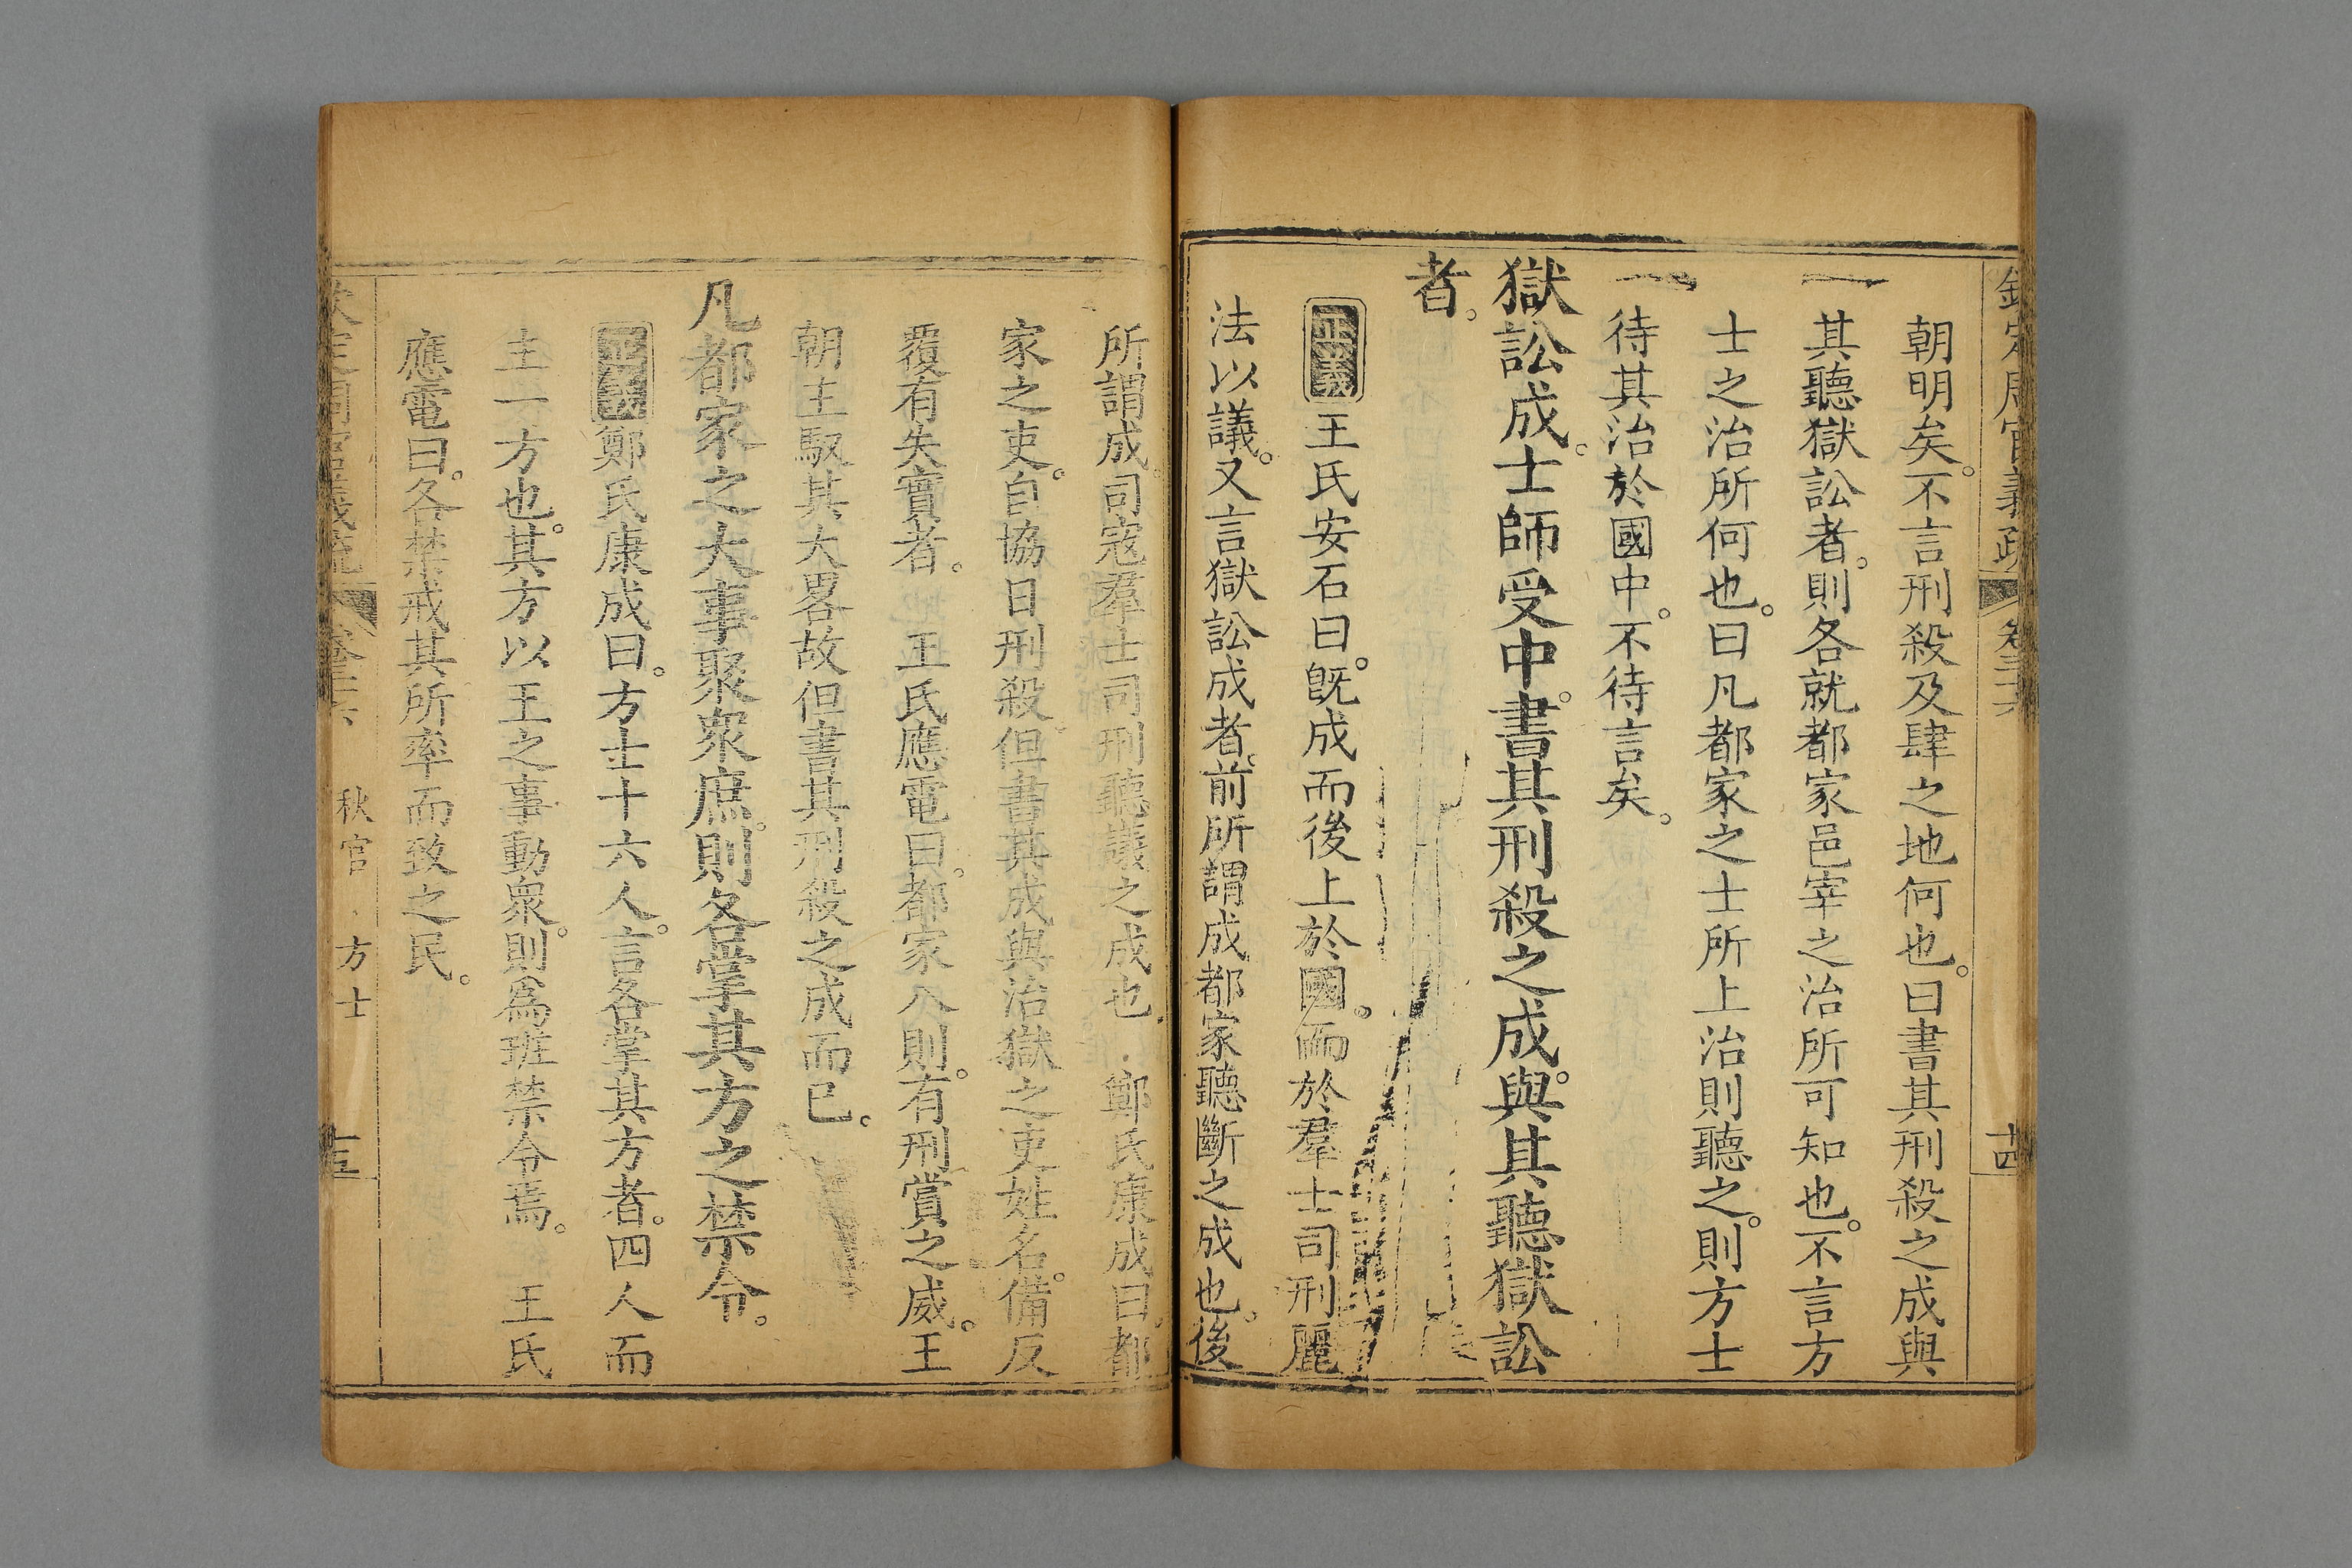 欽定周官義疏 卷三十六 十四
朝明矣。不言刑殺及肆之地何也。曰書其刑殺之成與
其聽獄訟者。則各就都家邑宰之治所可知也。不言方
士之治所何也。曰凡都家之士所上治則聽之。則方士
待其治於國中。不待言矣。
獄訟成。士師受中。書其刑殺之成。與其聽獄訟
者。
正義 王氏安石曰。旣成而後上於國。而於羣士司刑麗
法以議。又言獄訟成者。前所謂成。都家聽斷之成也。後
所謂成。司寇羣士司刑聽議之成也。 鄭氏康成曰。都
家之吏。自協日刑殺。但書其成與治獄之吏姓名。備反
覆有失實者。 王氏應電曰。都家八則。有刑賞之威。王
朝主馭其大畧故但書其刑殺之成而已。
凡都家之大事聚衆庶。則各掌其方之禁令。
正義 鄭氏康成曰。方士十六人。言各掌其方者。四人而
主一方也。其方以王之事動衆。則爲班禁令焉。 王氏
應電曰。各禁戒其所率而致之民。
欽定周官義疏 卷三十六 秋官 方士 十五